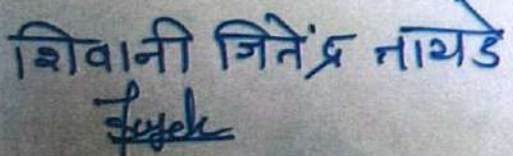 शिवानी जितेंद्र नायडे